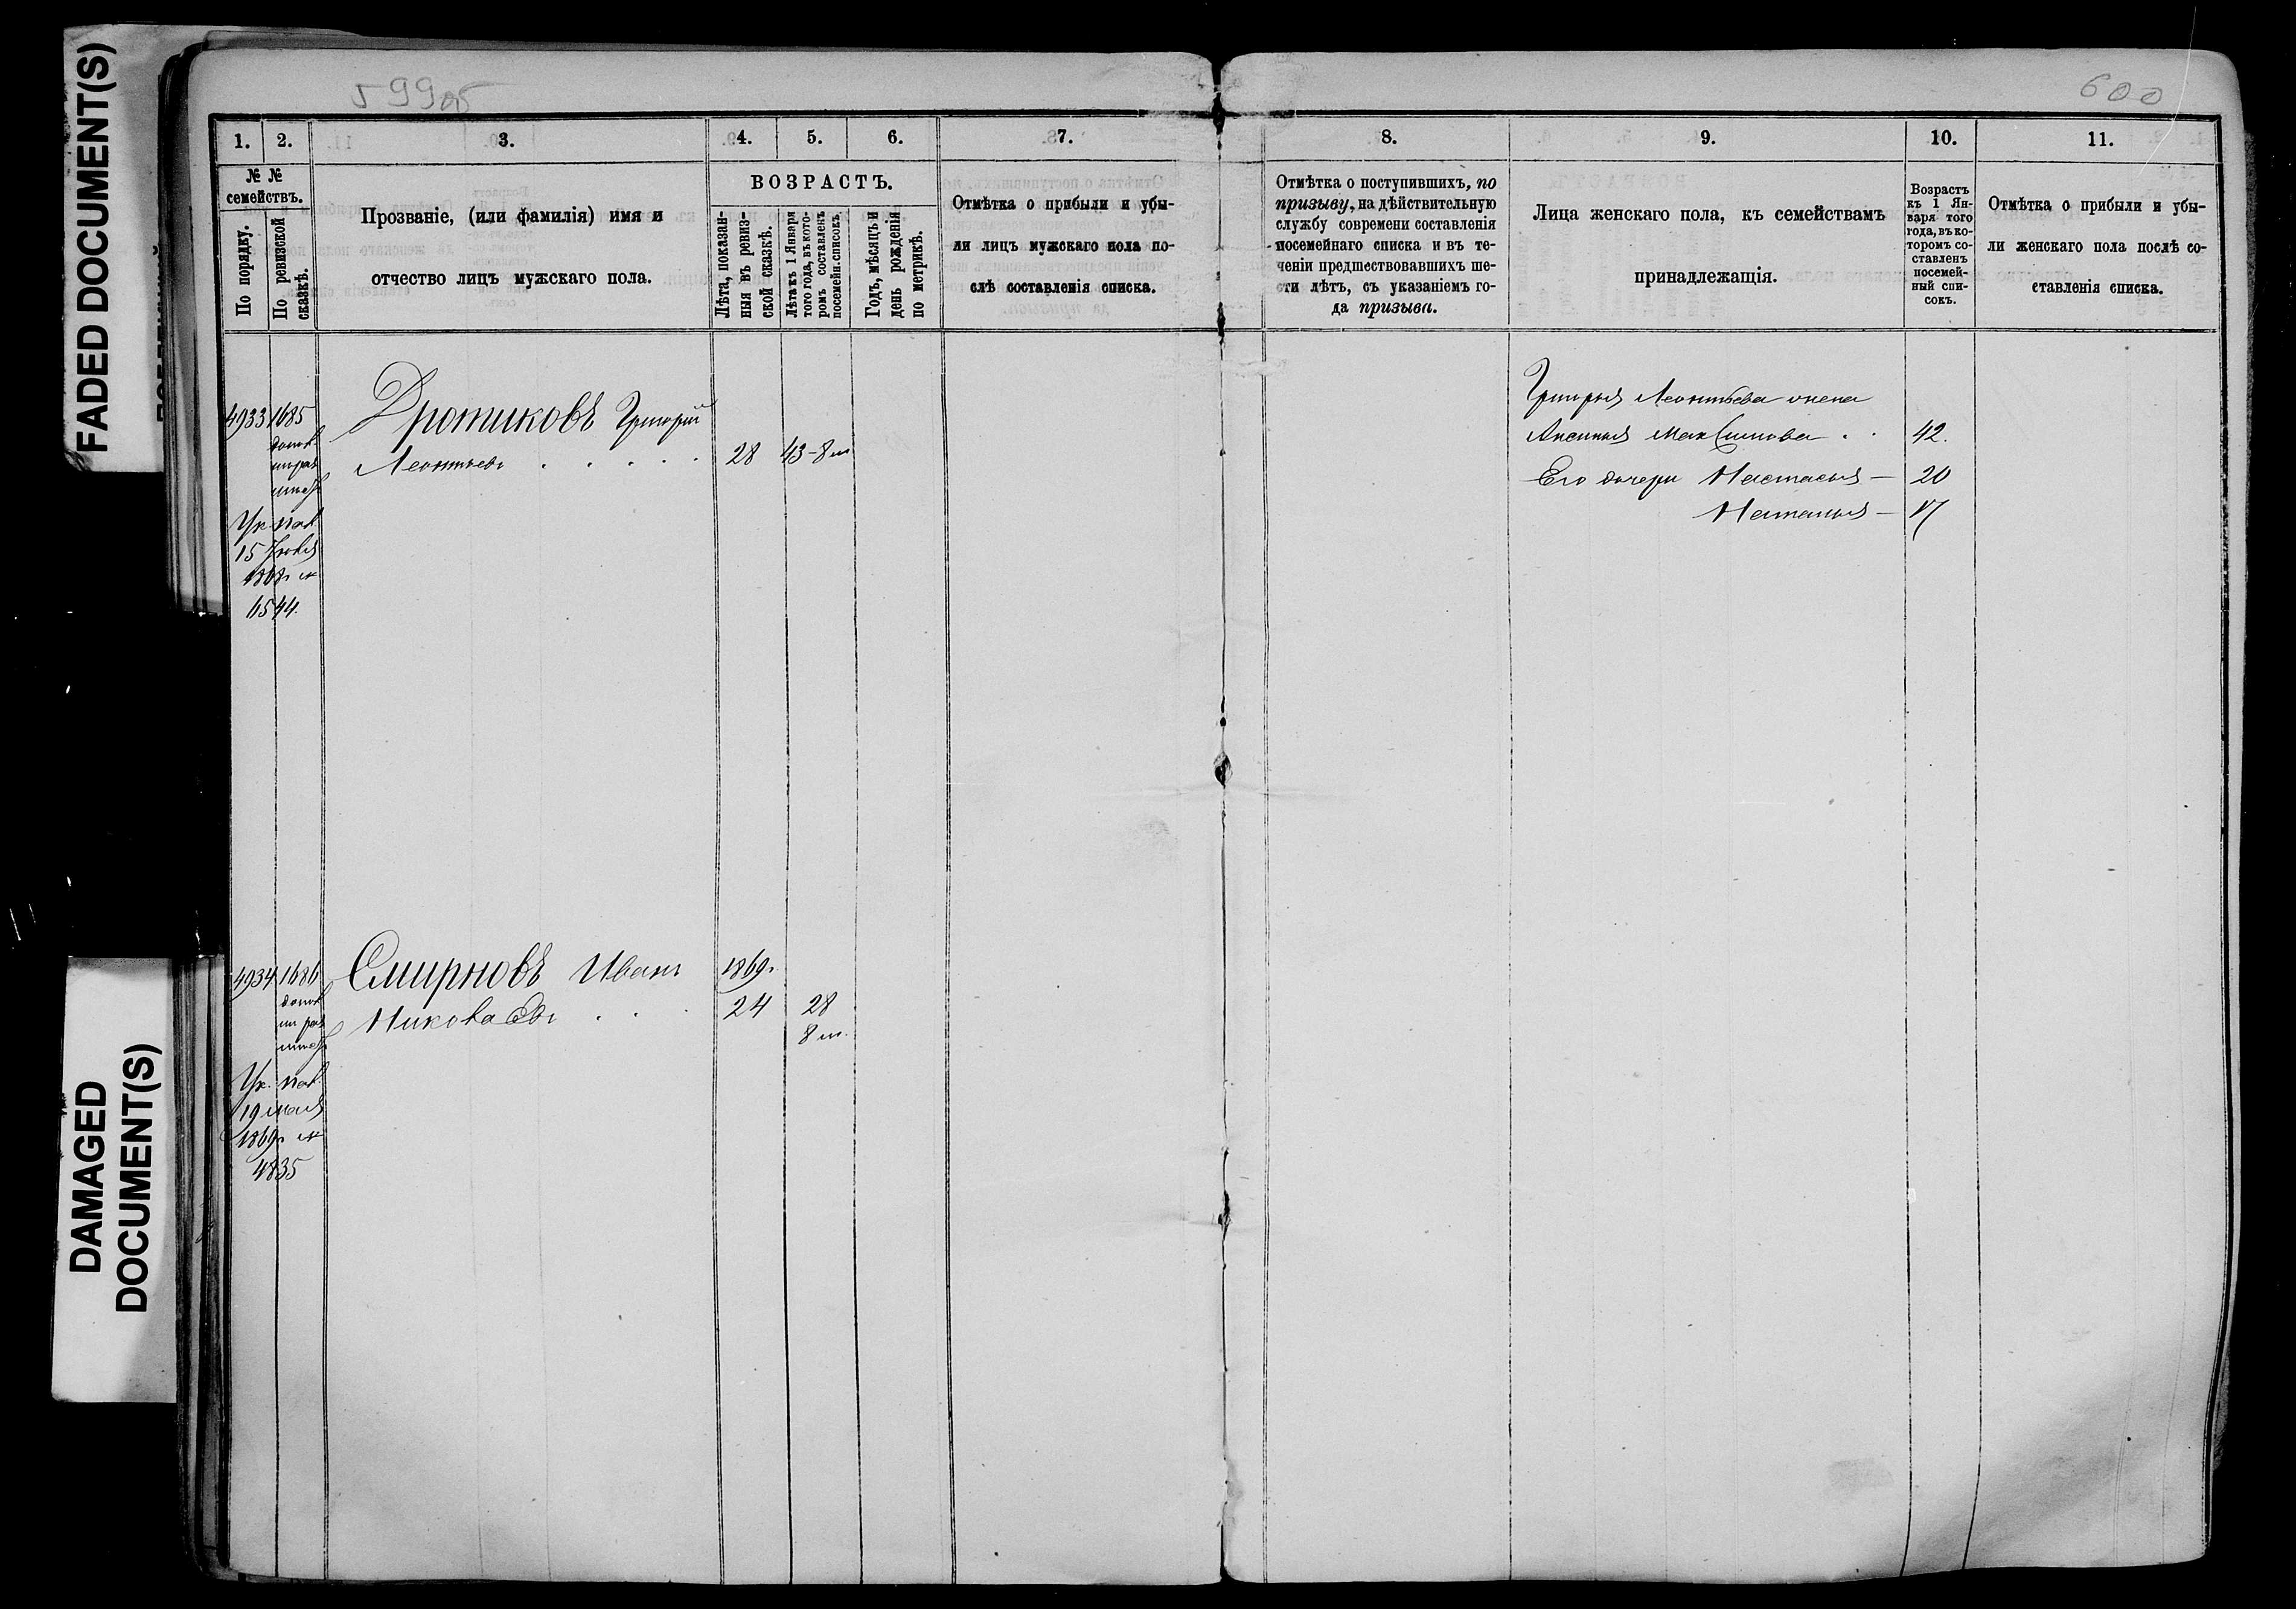 FADED DOCUMENT(S)
DAMAGED
DOCUMENT(S)
599об
600
1.
2.
3.
4.
5.
6.
7.
8.
9.
10.
11.
№ №
семействъ.
По порядку.
По ревизской
сказкѣ.
Прозваніе, (или фамилія) имя и
отчество лицъ мужскаго пола.
ВОЗРАСТЪ.
Лѣта, показан-
ныя въ ревиз-
ской сказкѣ.
Лѣта къ 1 Января
того года, въ кото-
ромъ составленъ
посемейн. списокъ.
Годъ, мѣсяцъ и
день рожденія
по метрикѣ.
Отмѣтка о прибыли и убы-
ли лицъ мужскаго пола по-
слѣ составленія списка.
Отмѣтка о поступившихъ, по
призыву, на дѣйствительную
службу современи составленія
посемейнаго списка и въ те-
ченіи предшествовавшихъ ше-
сти лѣтъ, съ указаніемъ го-
да призыва.
Лица женскаго пола, къ семействамъ
принадлежащія.
Возрастъ
къ 1 Ян-
варя того
года, въ ко-
торомъ со-
ставленъ
посемей-
ный спи-
сокъ.
Отмѣтка о прибыли и убы-
ли женскаго пола послѣ со-
ставленія списка.
4933 1685
Дротиковъ Григорій
Леонтьевъ 28 43-8м
Ук. пал.
15 Іюня
1868г №
6544.
Григорья Леонтьева жена
Аксинья Максимова 42.
Его дочери Настасья — 20
Наталья — 17
4934 1686
Смирновъ Иванъ 1869г
Николаевъ 24 28
8 м.
Ук. пал.
19 мая
1869г №
4835